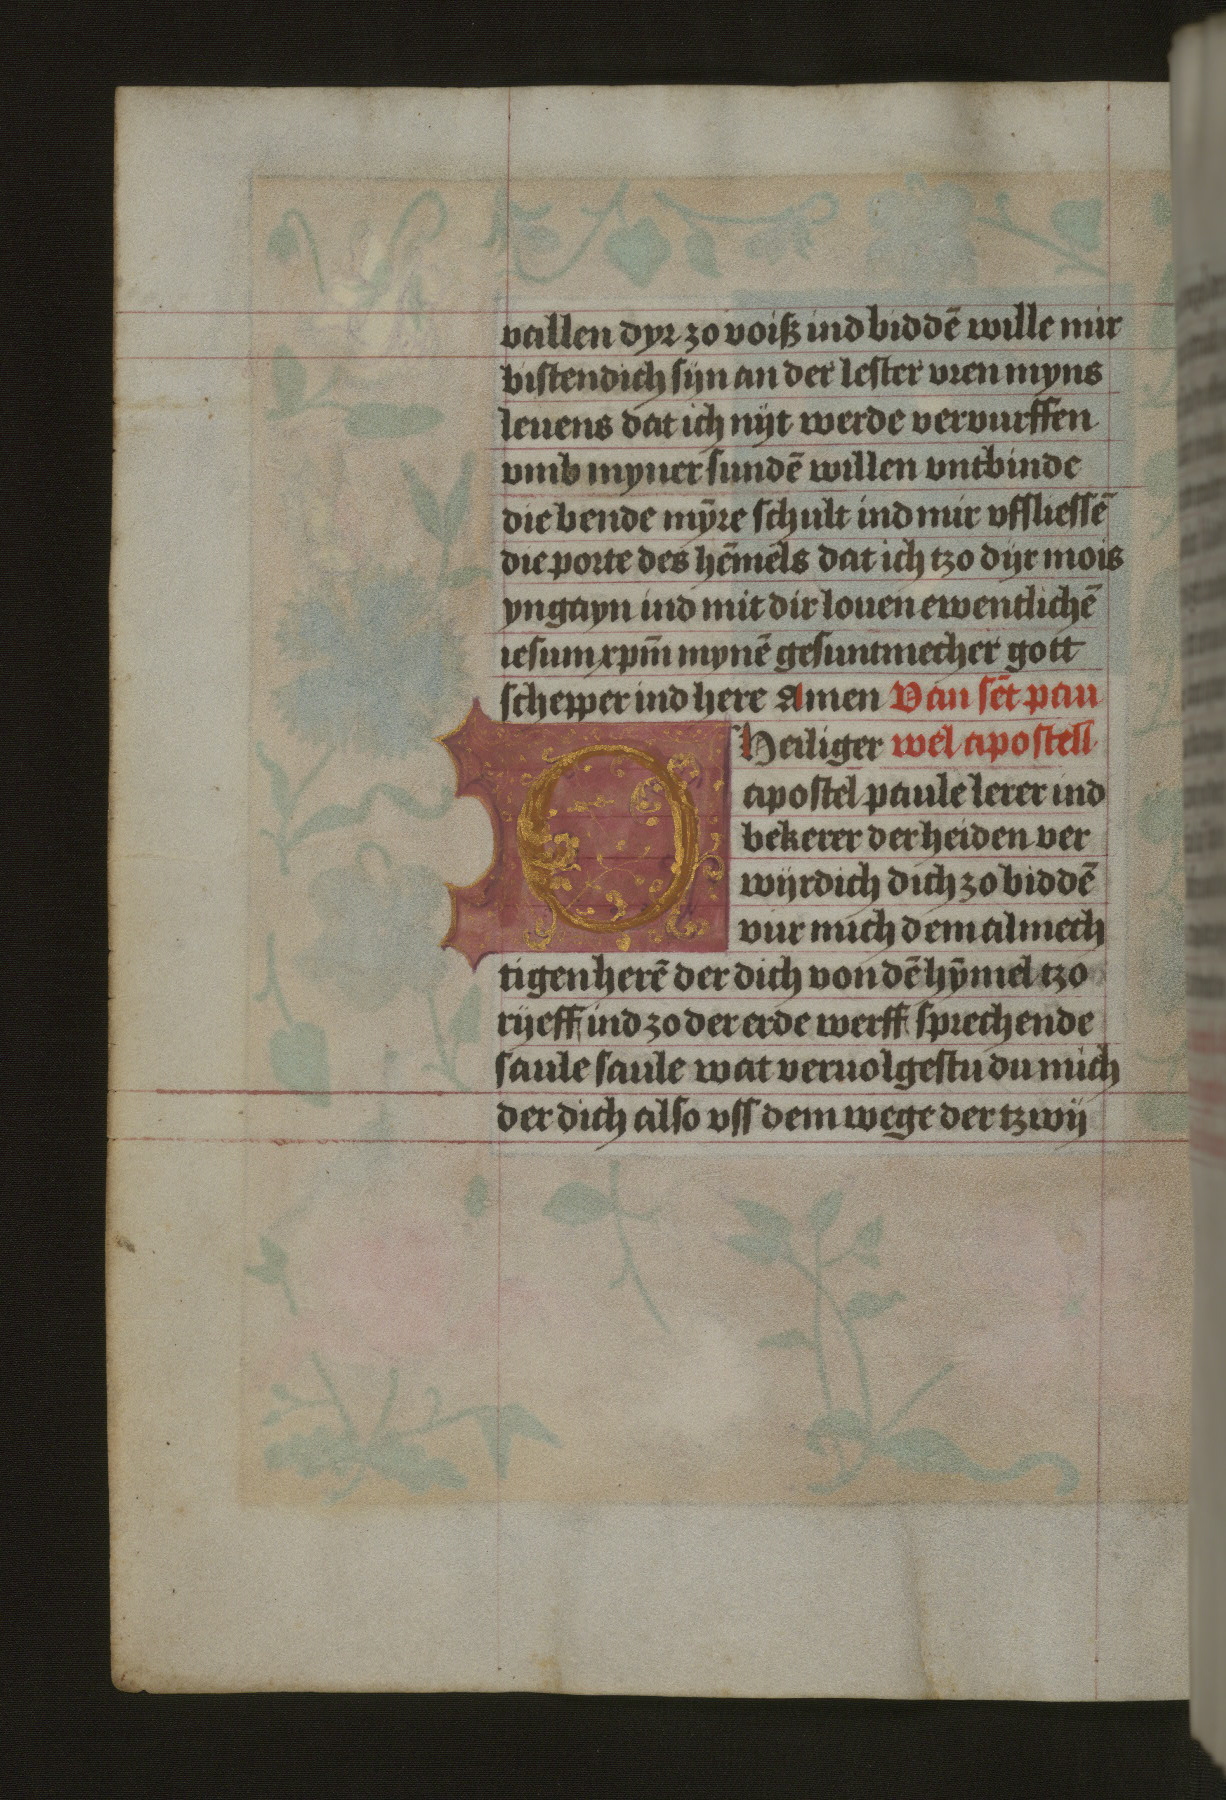 vallen dyr zo voiß ind biddē wille mir
bistendich sijn an der lester vren myns
leuens dat ich nijt werde vervurffen
vmb myner sundē willen vntbinde
die bende mȳre schult ind mir vffsliessē
die porte des hēmels dat ich tzo dijr mois
yngayn ind mit dir louen ewentlichē
iesum xpm̄ mynē gesuntmecher gott
schepper ind here Amen Van sēt pau
O Heiliger wel apostell
apostel paule lerer ind
bekerer der heiden ver
wijrdich dich zo biddē
vur mich dem almech
tigen herē der dich von dē hȳmel tzo
rijeff ind zo der erde werff sprechende
saule saule wat veruolgestu du mich
der dich also vss dem wege der tzwij